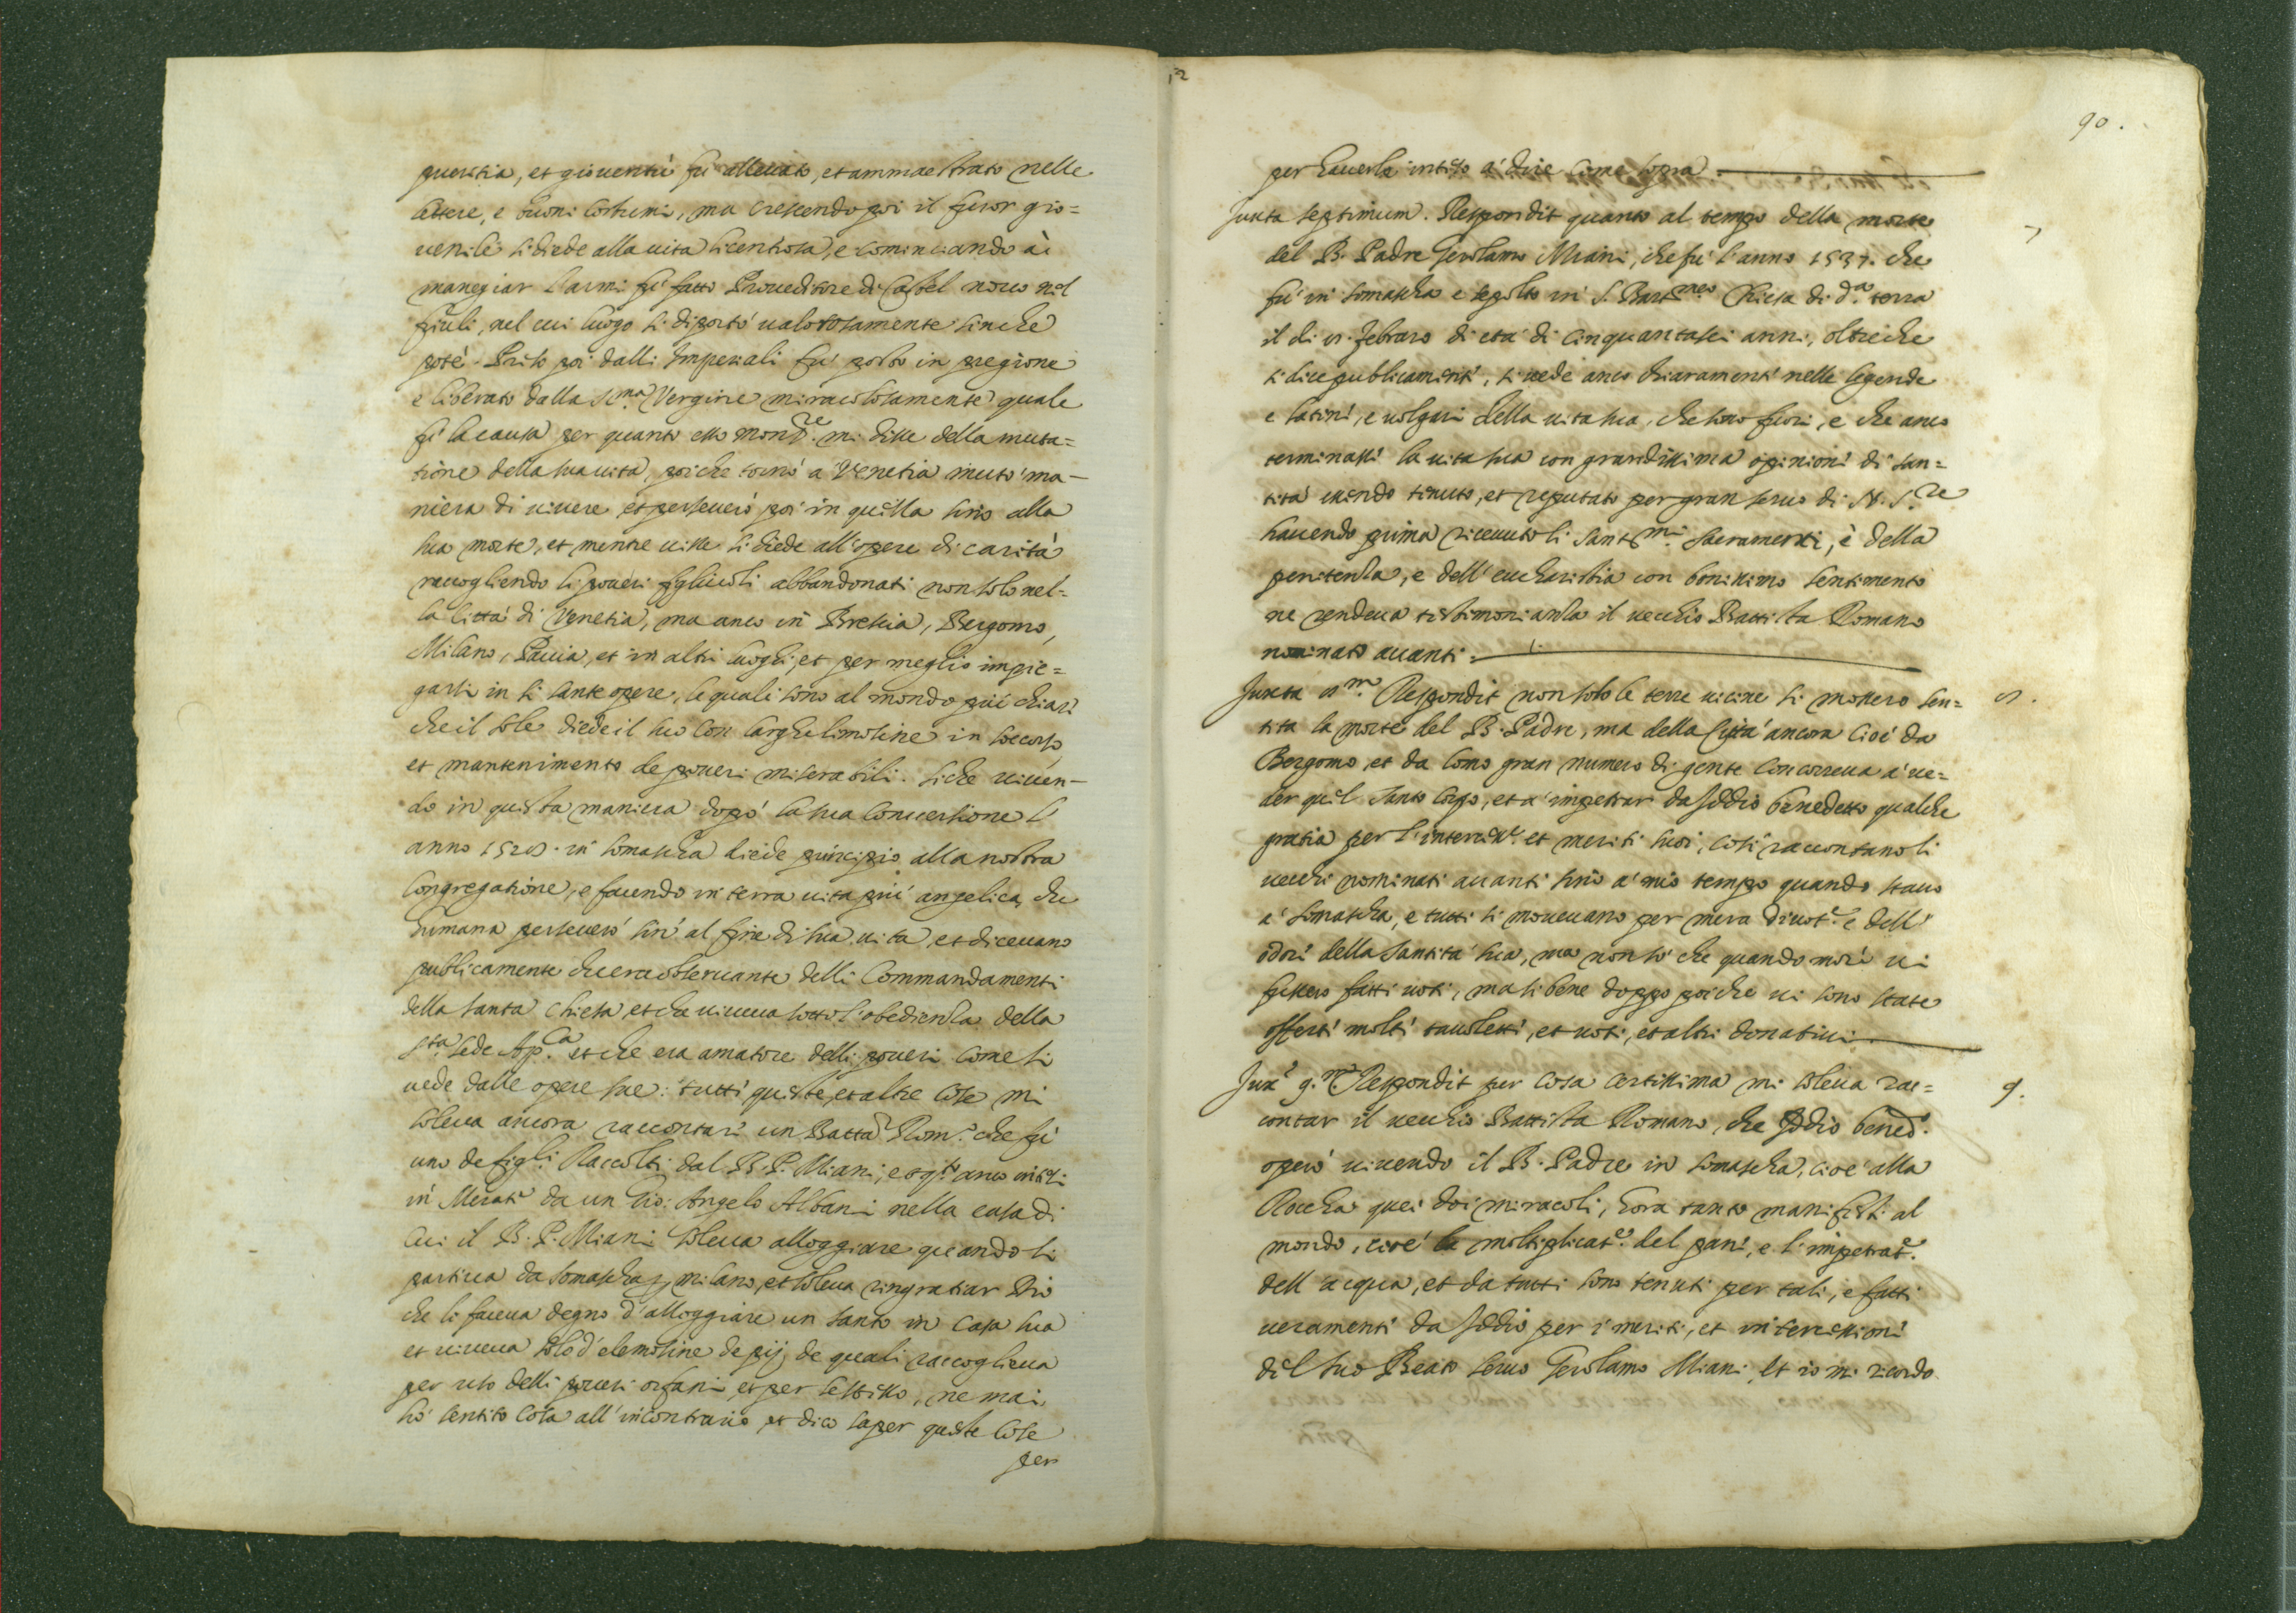 pueritia, et gioventù fu allevato, et ammaestrato nelle
lettere, e buoni costumi, ma crescendo poi il furor gio=
venile si diede alla vita licentiosa, e cominciando à
manegiar l'armi fu fatto Proveditore di Castel novo nel
friuli, nel cui luogo si diportò valorosamente sinche
potè. Preso poi dalli Imperiali fu posto in pregione
e liberato dalla S.ma Vergine miracolosamente quale
fu la causa per quanto esso mi disse della muta=
tione della sua vita, poiche tornò a Venetia mutò ma-
niera di vivere et perseverò poi in quella sino alla
sua morte, et mentre visse si diede all'opere di carità
raccogliendo li poveri figliuoli abbandonati non solo nel=
la Città di Venetia, ma anco in Brescia, Bergomo,
Milano, Pavia, et in altri luoghi, et per meglio impie=
garsi in si sante opere, le quali sono al mondo più chiare
che il sole diede il suo con larghe limosine in soccorso
et mantenimento de poveri miserabili. Siche viven-
do in questa maniera dopò la sua conversione l'
anno 1528. in Somascha diede principio alla nostra
Congregatione, e facendo in terra vita più angelica, che
humana perseverò sin' al fine di sua vita, et dicevano
publicamente che era osservante delli Commandamenti
della santa Chiesa, et che viveva sotto l'obedienza della
S.ta Sede Ap.ca et che era amatore delli poveri come si
vede dalle opere sue: tutti queste, et altre cose mi
soleva ancora raccontare un Batta Rom.o che fu
uno de figli Raccolti dal B. P. Miani, e anco intesi
in Merate da un Gio: Angelo Albani nella casa di
cui il B. P. Miani soleva alloggiare quando si
partiva da Somascha p milano, et soleva ringratiar Dio
che li faceva degno d'alloggiare un santo in casa sua
et viveva solo d'elemosine de pij, de quali raccoglieva
per uso delli poveri orfani, et per se stesso, ne mai
hò sentito cosa all'incontrario et dico saper queste cose
per
12
90.
per haverle inteso a dire come sopra.
Juxta septimum. Respondit quanto al tempo della morte
7
del B. Padre Gerolamo Miani, che fu l'anno 1537. che
fu in Somascha e sepolto in S. Bart.meo Chiesa di d.a terra
il di 8. febraro di età di cinquantasei anni, oltre che
si dice publicamente, si vede anco chiaramente nelle legende
e latine, e volgari della vita sua, che sono fuori, e che anco
terminasse la vita sua con grandissima opinione di san=
tità essendo tenuto, et reputato per gran servo di N. S.re
havendo prima ricevuto li Sant.mi Sacramenti, è della
penitenza, e dell'eucharistia con bonissimo sentimento
ne rendeva testimonianza il vecchio Battista Romano
nominato avanti.
Juxta 8.m Respondit non solo le terre vicine si mossero sen=
8.
tita la morte del B. Padre, ma della Città ancora cioè da
Bergomo et da Como gran numero di gente concorreva à ve=
der quel santo corpo, et a impetrar da Iddio benedetto qualche
gratia per l'interces.e et meriti suoi, così raccontano li
vecchi nominati avanti sino a mio tempo quando stavo
à Somascha, e tutti si movevano per mera divot.e e dell'
odore della santità sua, ma non sò che quando morì vi
fussero fatti voti, ma si bene doppo poiche vi sono state
offerti molti tavolette, et voti, et altri donativi.
Jux.a 9.m Respondit per cosa certissima mi soleva rac=
9.
contar il vecchio Battista Romano, che Iddio bened.o
operò vivendo il B. Padre in Somascha, cioè alla
Roccha quei doi miracoli, hora tanto manifesti al
mondo, cioè la moltiplicat.e del pane, e l'impetrat.e
dell'acqua, et da tutti sono tenuti per tali, e fatti
veramente da Iddio per i meriti, et intercessione
del suo Beato servo Gerolamo Miani, et io mi ricordo